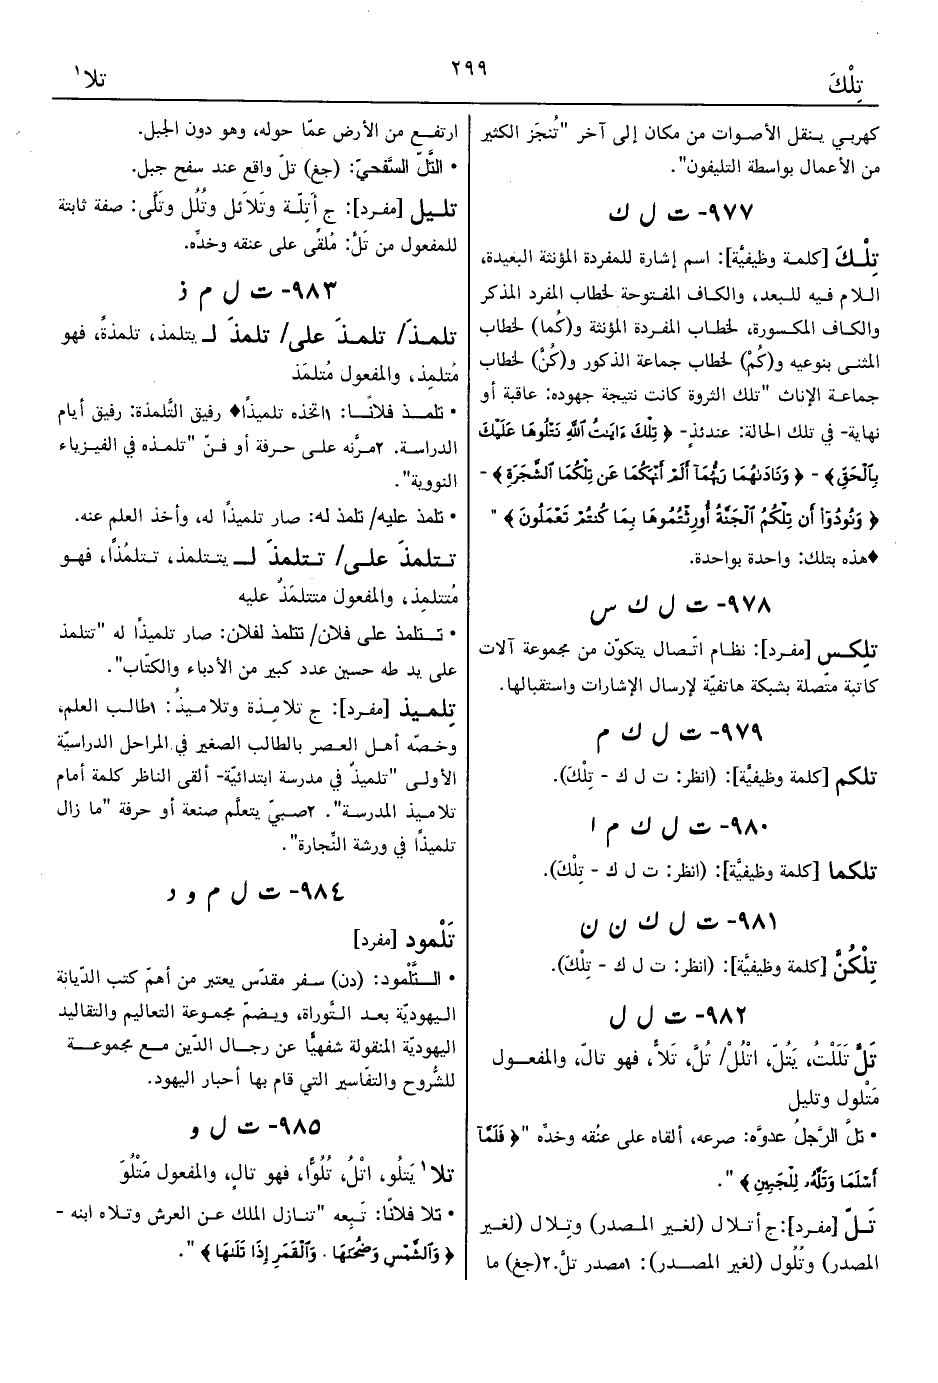 تِلْكَ
٢٩٩
تلا١
كهربي ينقل الأصوات من مكان إلى آخر "تُنجَز الكثير
من الأعمال بواسطة التليفون".
٩٧٧- ت ل ك
تِلْكَ [كلمة وظيفيَّة]: اسم إشارة للمفردة المؤنثة البعيدة،
اللام فيه للبعد، والكاف المفتوحة لخطاب المفرد المذكر
والكاف المكسورة، لخطاب المفردة المؤنثة و(كُما) لخطاب
المثنى بنوعيه و(كُمْ) لخطاب جماعة الذكور و(كُنَّ) لخطاب
جماعة الإناث "تلك الثروة كانت نتيجة جهوده: عاقبة أو
نهاية- في تلك الحالة: عندئذٍ- ﴿ تِلْكَ ءَايَٰتُ ٱللَّهِ نَتْلُوهَا عَلَيْكَ
بِٱلْحَقِّ ﴾- - ﴿ وَنَادَىٰهُمَا رَبُّهُمَآ أَلَمْ أَنْهَكُمَا عَن تِلْكُمَا ٱلشَّجَرَةِ ﴾-
﴿ وَنُودُوٓا۟ أَن تِلْكُمُ ٱلْجَنَّةُ أُورِثْتُمُوهَا بِمَا كُنتُمْ تَعْمَلُونَ ﴾ "
♦هذه بتلك: واحدة بواحدة.
٩٧٨- ت ل ك س
تلكس [مفرد]: نظام اتّصال يتكوّن من مجموعة آلات
كاتبة متّصلة بشبكة هاتفيّة لإرسال الإشارات واستقبالها.
٩٧٩- ت ل ك م
تلكم [كلمة وظيفيَّة]: (انظر: ت ل ك - تِلْكَ).
٩٨٠- ت ل ك م ا
تلكما [كلمة وظيفيَّة]: (انظر: ت ل ك - تِلْكَ).
٩٨١- ت ل ك ن ن
تِلْكُنَّ [كلمة وظيفيَّة]: (انظر: ت ل ك - تِلْكَ).
٩٨٢- ت ل ل
تَلَّ تَلَلْتُ، يَتُلّ، اتْلُلْ/ تُلَّ، تَلاًّ، فهو تالّ، والمفعول
مَتْلول وتليل
• تلَّ الرَّجلُ عدوَّه: صرعه، ألقاه على عنُقه وخدِّه "﴿ فَلَمَّآ
أَسْلَمَا وَتَلَّهُۥ لِلْجَبِينِ ﴾ ".
تَلّ [مفرد]:ج أتلال (لغير المصدر) وتِلال (لغير
المصدر) وتُلُول (لغير المصدر): ١مصدر تلَّ.٢(جغ) ما
ارتفع من الأرض عمّا حوله، وهو دون الجبل.
• التَّلّ السَّفحيّ: (جغ) تلّ واقع عند سفح جبل.
تليل [مفرد]: ج أَتِلّة وتَلائل وتُلُل وتَلَّى: صفة ثابتة
للمفعول من تَلَّ: مُلقًى على عنقه وخدِّه.
٩٨٣- ت ل م ذ
تلمذَ/ تلمذَ على/ تلمذَ لـ يتلمذ، تلمذةً، فهو
مُتلمِذ، والمفعول مُتلمَذ
• تلمذ فلانًا: ١اتخذه تلميذًا♦ رفيق التَّلمذة: رفيق أيام
الدراسة. ٢مرَّنه على حرفة أو فنّ "تلمذه في الفيزياء
النووية".
• تلمذ عليه/ تلمذ له: صار تلميذًا له، وأخذ العلم عنه.
تتلمذَ على/ تتلمذَ لـ يتتلمذ، تتلمُذًا، فهو
مُتتلمِذ، والمفعول متتلمَذ عليه
• تتلمذ على فلان/ تتلمذ لفلان: صار تلميذًا له "تتلمذ
على يد طه حسين عدد كبير من الأدباء والكتّاب".
تِلميذ [مفرد]: ج تلامِذة وتلاميذُ: ١طالب العلم،
وخصّه أهل العصر بالطالب الصغير في المراحل الدراسيّة
الأولى "تلميذٌ في مدرسة ابتدائيّة- ألقى الناظر كلمة أمام
تلاميذ المدرسة". ٢صبيّ يتعلَّم صنعة أو حرفة "ما زال
تلميذًا في ورشة النِّجارة".
٩٨٤- ت ل م و د
تَلْمود [مفرد]
• التَّلْمود: (دن) سفر مقدّس يعتبر من أهمّ كتب الدّيانة
اليهوديّة بعد التَّوراة، ويضمّ مجموعة التعاليم والتقاليد
اليهوديّة المنقولة شفهيًّا عن رجال الدّين مع مجموعة
للشُّروح والتفاسير التي قام بها أحبار اليهود.
٩٨٥- ت ل و
تلا١ يَتلُو، اتْلُ، تُلُوًّا، فهو تالٍ، والمفعول مَتْلُوّ
• تلا فلانًا: تَبِعه "تنازل الملك عن العرش وتلاه ابنه -
﴿ وَٱلشَّمْسِ وَضُحَىٰهَا . وَٱلْقَمَرِ إِذَا تَلَىٰهَا ﴾ ".